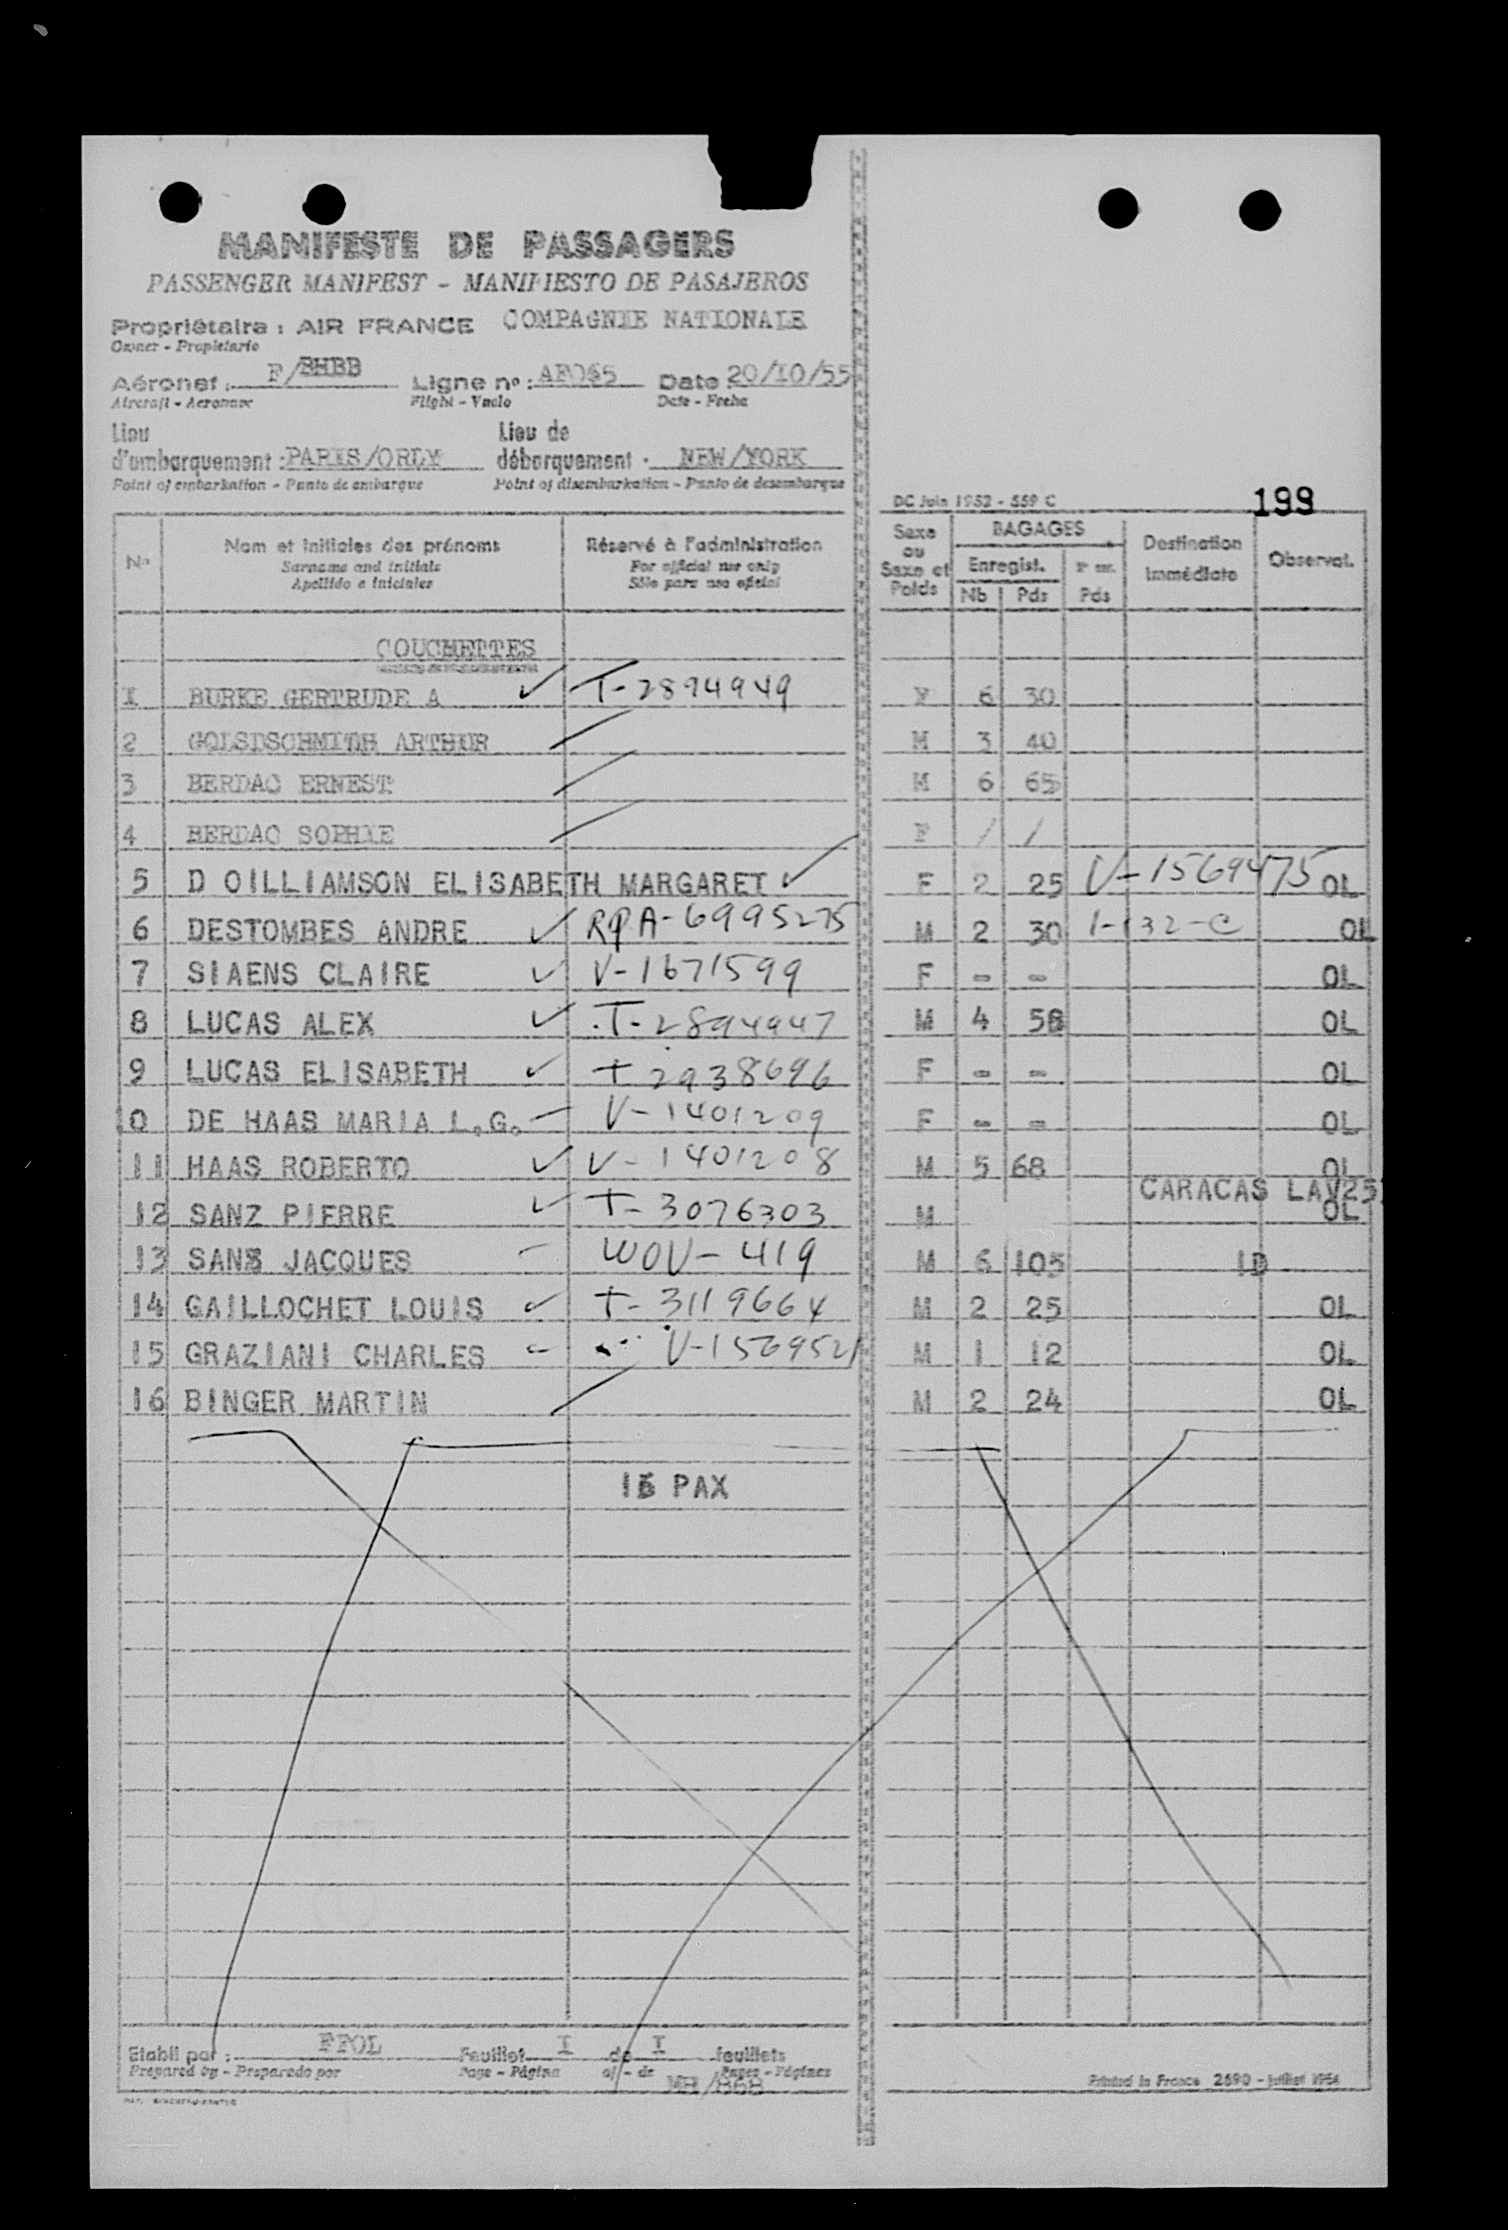 MANIFESTE DE PASSAGERS
PASSENGER MANIFEST - MANIFIESTO DE PASAJEROS
Propriétaire : AIR FRANCE COMPAGNIE NATIONALE
Owner - Propietario
Aéronef : F/BHBB Ligne nº : AF065 Date 20/10/55
Aircraft - Aeronave Flight - Vuelo Date - Fecha
Lieu Lieu de
d'embarquement : PARIS/ORLY débarquement · NEW/YORK
Point of embarkation - Punto de embarque Point of disembarkation - Punto de desembarque
DC Juin 1952 - 559 C 199
Nº Nom et initiales des prénoms Réservé à l'administration Sexe ou Sexe et Poids BAGAGES Destination immédiate Observat.
Surname and initials For official use only Enregist.
Apellido e iniciales Sólo para uso oficial Nb Pds Pds
COUCHETTES
1 BURKE GERTRUDE A T-2894949 F 6 30
2 GOLSDSCHMITH ARTHUR M 3 40
3 BERDAC ERNEST M 6 65
4 BERDAC SOPHIE F / /
5 D OILLIAMSON ELISABETH MARGARET F 2 25 V-1569475 OL
6 DESTOMBES ANDRE RPA-6995275 M 2 30 1-132-C OL
7 SIAENS CLAIRE V-1671599 F - - OL
8 LUCAS ALEX T-2894947 M 4 58 OL
9 LUCAS ELISABETH T 2938696 F - - OL
10 DE HAAS MARIA L.G. V-1401209 F - - OL
11 HAAS ROBERTO V-1401208 M 5 68 OL
CARACAS LAV25
12 SANZ PIERRE T-3076303 M OL
13 SANZ JACQUES WOV-419 M 6 105 ID
14 GAILLOCHET LOUIS T-3119664 M 2 25 OL
15 GRAZIANI CHARLES V-1569521 M 1 12 OL
16 BINGER MARTIN M 2 24 OL
16 PAX
Etabli par : FFOL Feuillet I de I feuillets
Prepared by - Preparado por Page - Página of - de Pages - Páginas
MB/868
Printed in France 2690 - juillet 1954